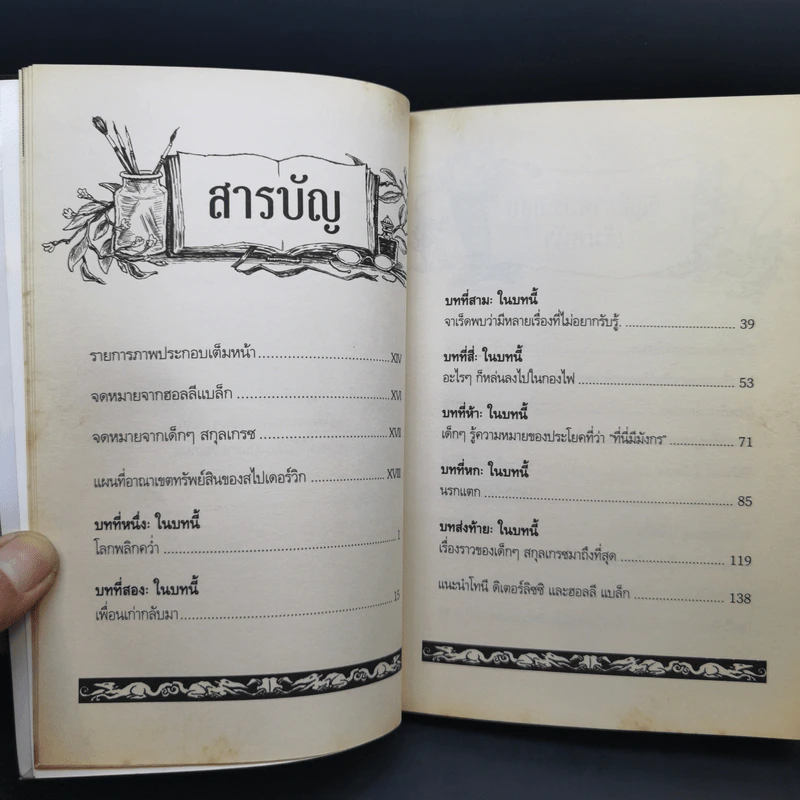 สารบัญ
รายการภาพประกอบเต็มหน้า ........ XIV
จดหมายจากฮอลลีแบล็ก ........ XVI
จดหมายจากเด็กๆ สกุลเกรซ ........ XVII
แผนที่อาณาเขตทรัพย์สินของสไปเดอร์วิก ........ XVIII
บทที่หนึ่ง: ในบทนี้
โลกพลิกคว่ำ ........ 1
บทที่สอง: ในบทนี้
เพื่อนเก่ากลับมา ........ 15
บทที่สาม: ในบทนี้
จาเร็ดพบว่ามีหลายเรื่องที่ไม่อยากรับรู้. ........ 39
บทที่สี่: ในบทนี้
อะไรๆ ก็หล่นลงไปในกองไฟ ........ 53
บทที่ห้า: ในบทนี้
เด็กๆ รู้ความหมายของประโยคที่ว่า "ที่นี่มีมังกร" ........ 71
บทที่หก: ในบทนี้
นรกแตก ........ 85
บทส่งท้าย: ในบทนี้
เรื่องราวของเด็กๆ สกุลเกรซมาถึงที่สุด ........ 119
แนะนำโทนี ดิเตอร์ลิซซิ และฮอลลี แบล็ก ........ 138